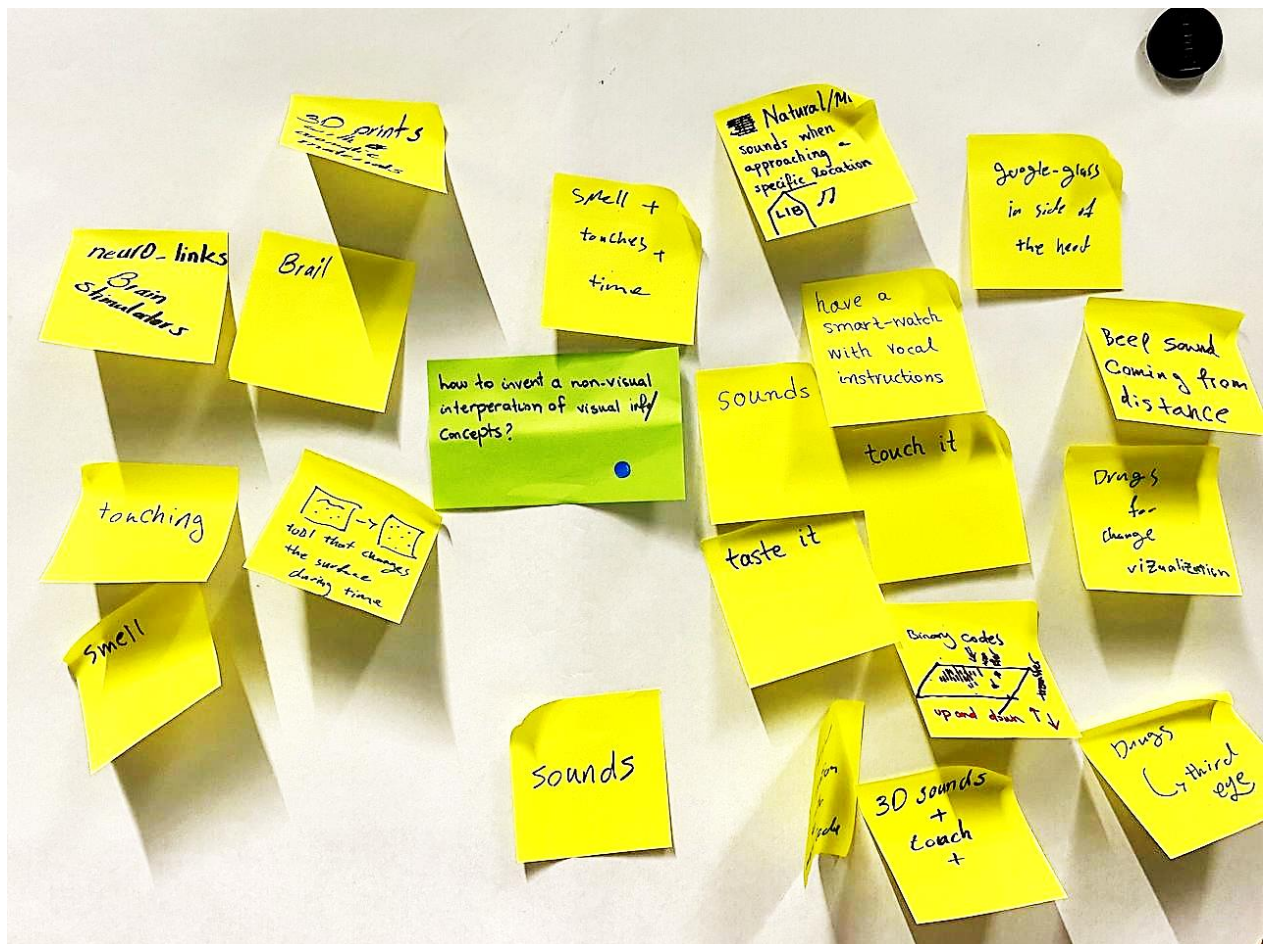 3D prints
Natural/
sounds when
approaching a
specific location
LIB
google-glass
in side of
the head
smell +
touches +
time
neurO-links
Brain
stimulators
Brail
have a
smart-watch
with vocal
instructions
Beep sound
Coming from
distance
how to invent a non-visual
interperation of visual info/
concepts?
sounds
touch it
Drugs
for
change
vizualization
touching
tool that changes
the surface
during time
taste it
smell
Binary codes
up and down
sounds
3D sounds
+
touch
+
Drugs
third
eye